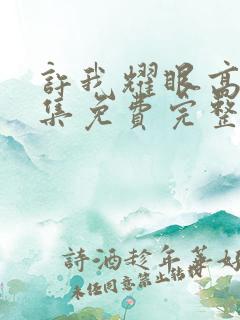 許我耀眼高
集免費完整
詩酒趁年華好
未经同意禁止转载